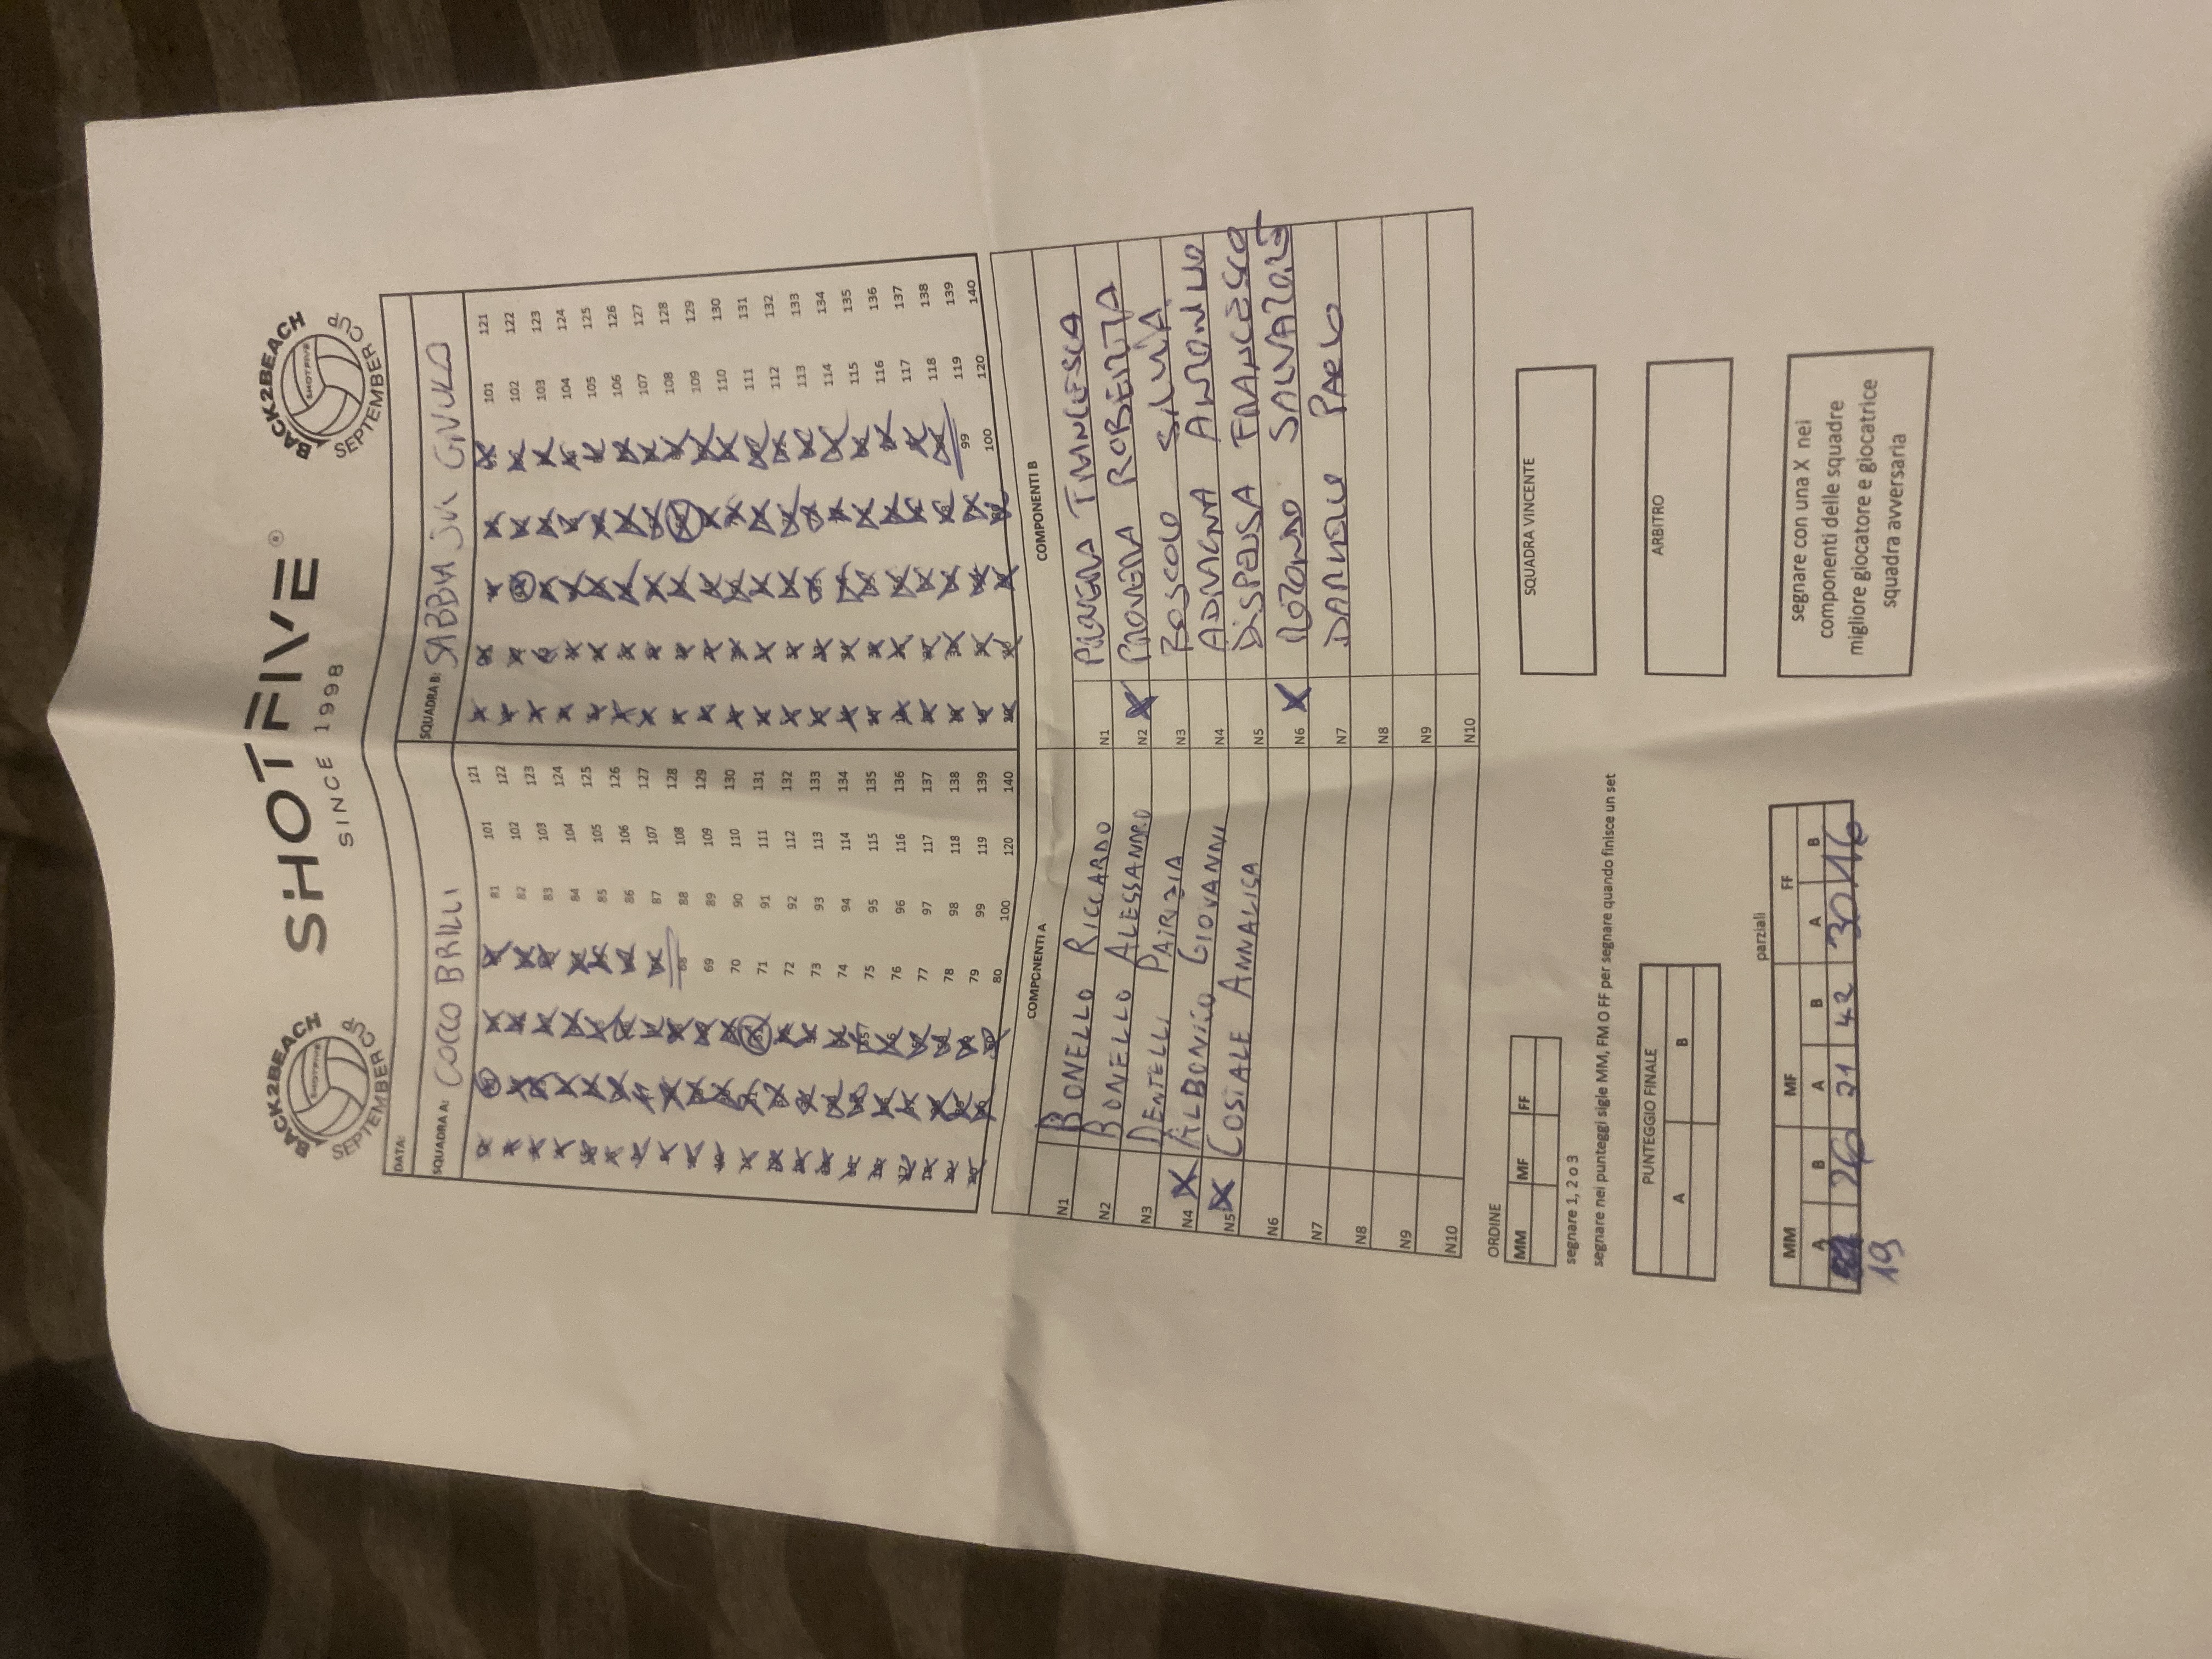 BACK2BEACH
SHOTFIVE
SEPTEMBER CUP
SHOTFIVE®
SINCE 1998
BACK2BEACH
SHOTFIVE
SEPTEMBER CUP
DATA:
SQUADRA A: COCCO BRILLI
SQUADRA B: SABBIA SUL
81 101 121
82 102 122
83 103 123
84 104 124
85 105 125
86 106 126
87 107 127
68 88 108 128
69 89 109 129
70 90 110 130
71 91 111 131
72 92 112 132
73 93 113 133
74 94 114 134
75 95 115 135
76 96 116 136
77 97 117 137
78 98 118 138
79 99 119 139
80 100 120 140
101 121
102 122
103 123
104 124
105 125
106 126
107 127
108 128
109 129
110 130
111 131
112 132
113 133
114 134
115 135
116 136
117 137
118 138
99 119 139
100 120 140
COMPONENTI A
N1 BONELLO RICCARDO
N2 BONELLO ALESSANDRO
N3 DENTELLI PATRIZIA
N4 X ALBONICO GIOVANNI
N5 X COSTALE ANNALISA
N6
N7
N8
N9
N10
COMPONENTI B
N1 FRANCESCA
N2 X PROVERA ROBERTA
N3 BOSCOLO SILVIA
N4 ADRAGNA ANTONINO
N5 DISPENSA FRANCESCO
N6 X ROTONDO SALVATORE
N7 PAOLO
N8
N9
N10
ORDINE
MM MF FF
segnare 1, 2 o 3
segnare nei punteggi sigle MM, FM O FF per segnare quando finisce un set
PUNTEGGIO FINALE
A B
parziali
MM MF FF
A B A B A B
26 21 42 30 16
19
SQUADRA VINCENTE
ARBITRO
segnare con una X nei
componenti delle squadre
migliore giocatore e giocatrice
squadra avversaria